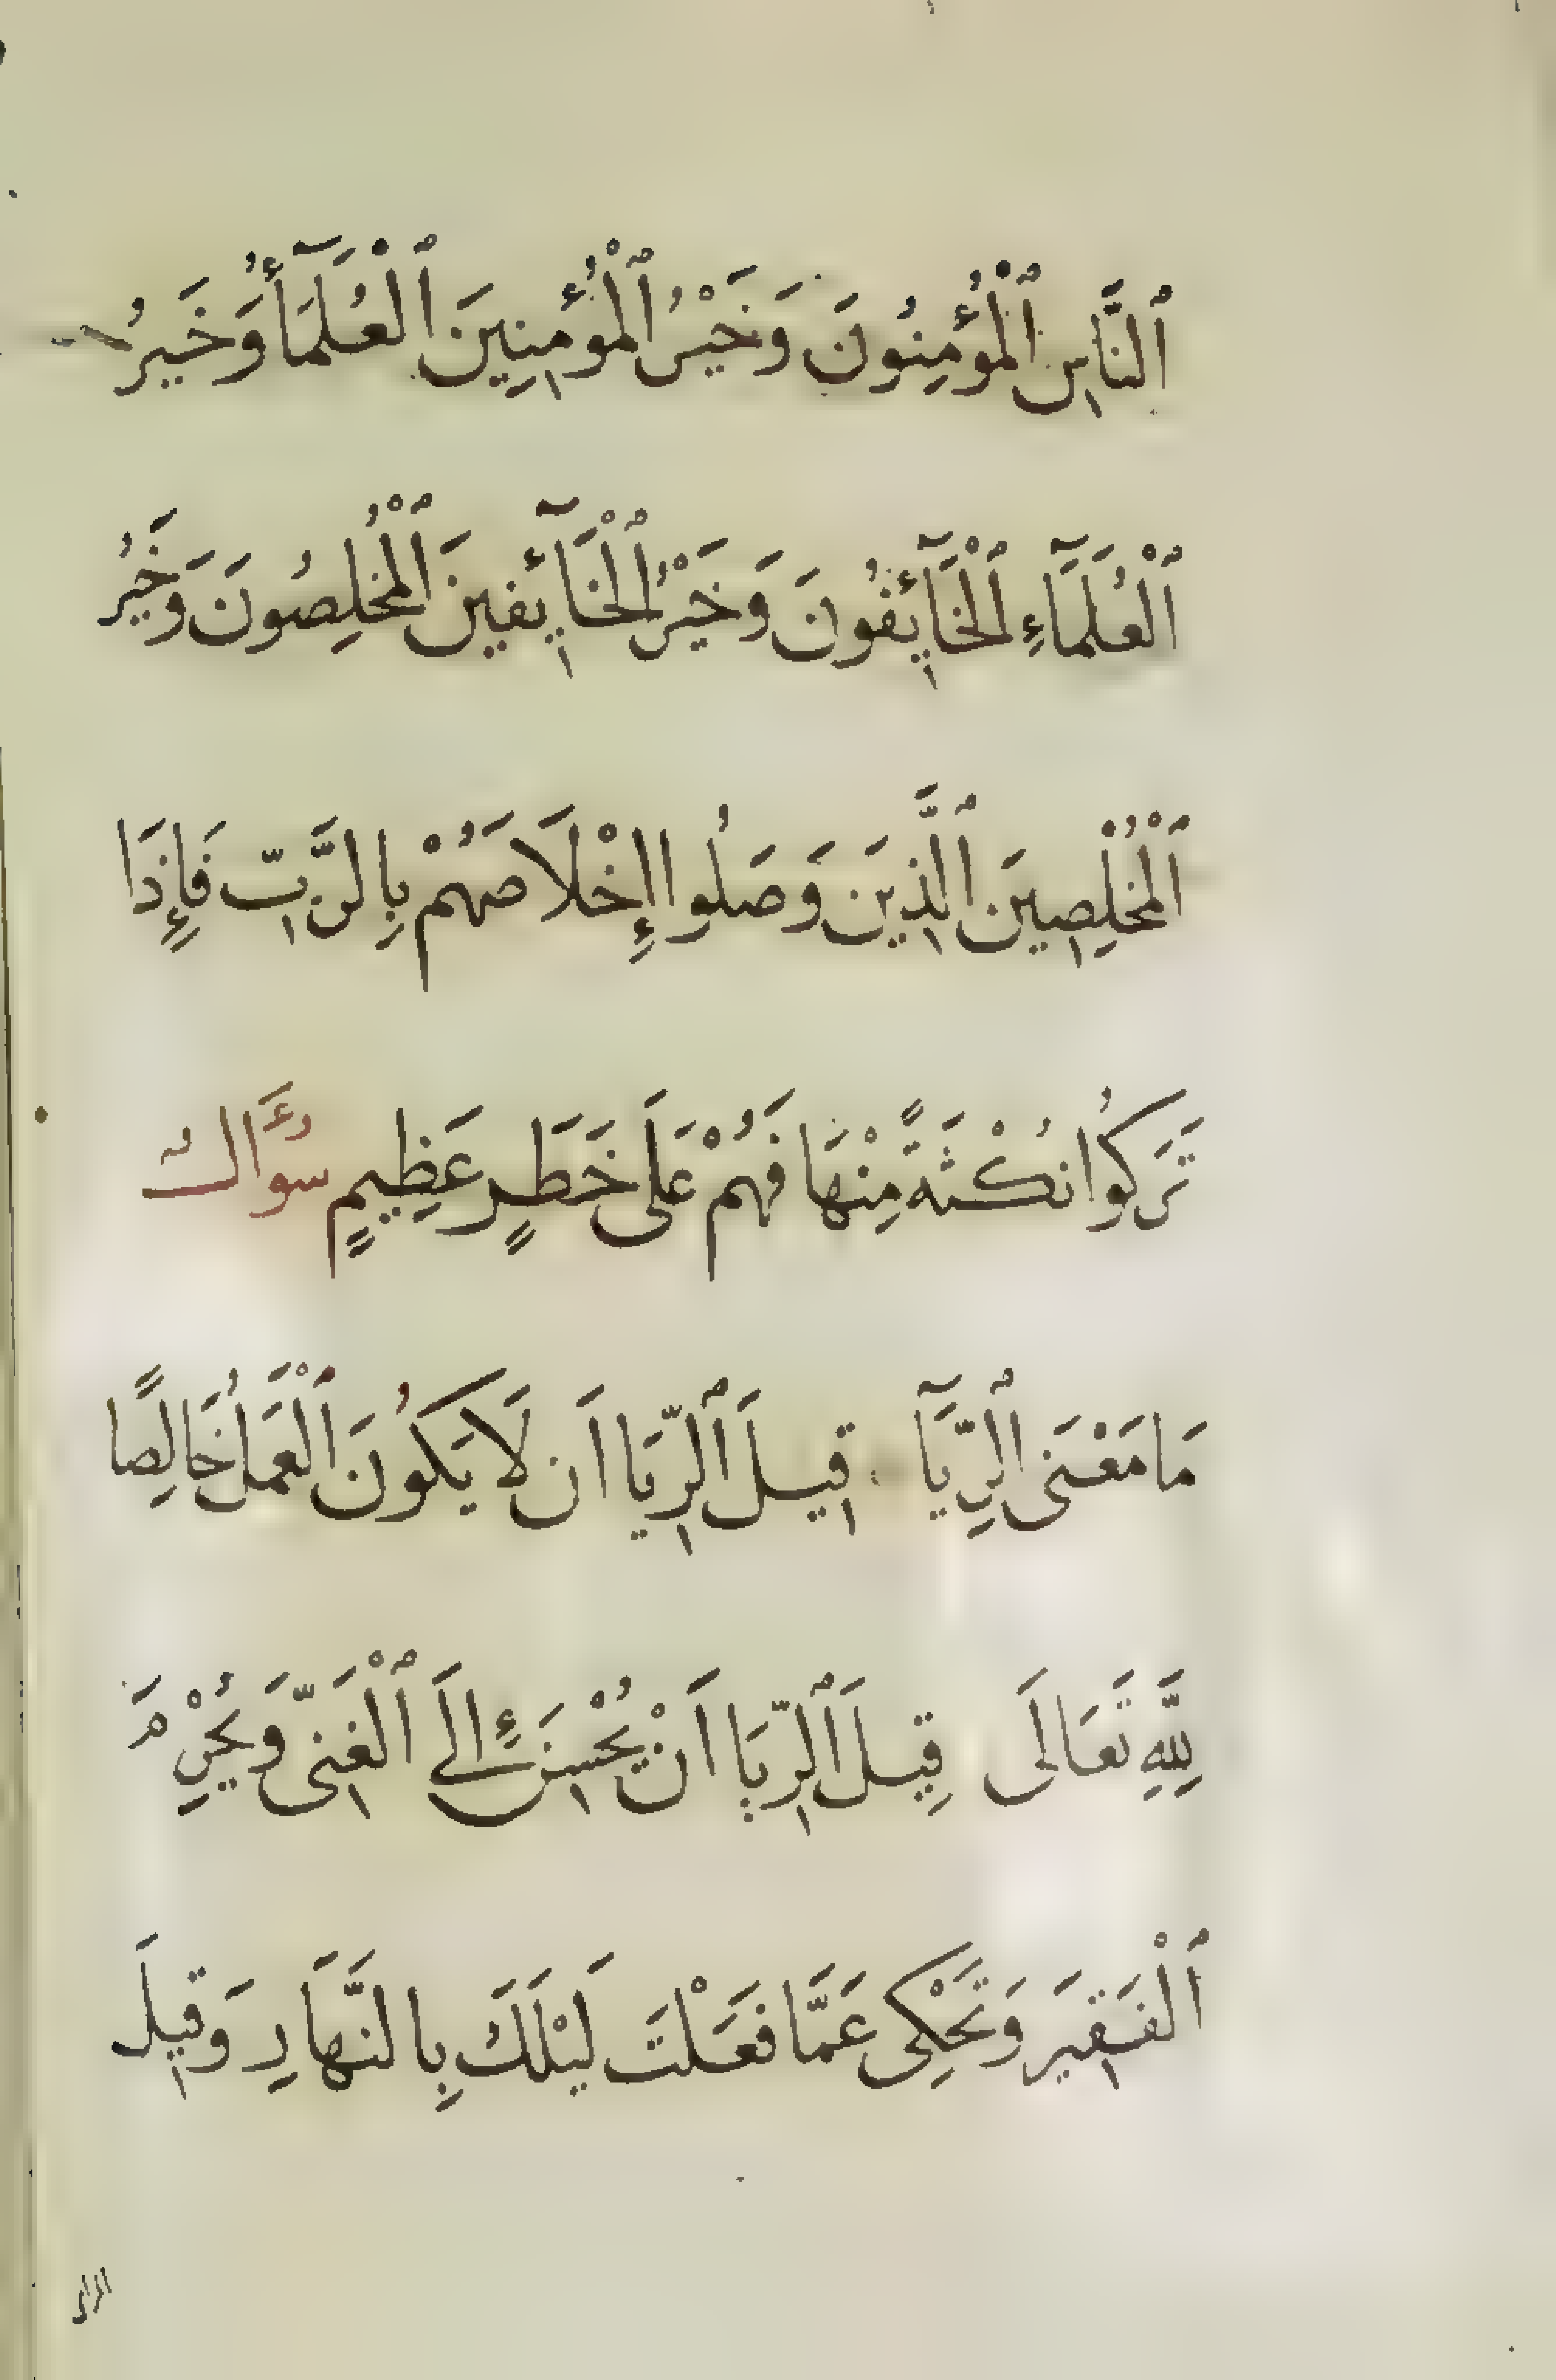 ٱلنَّاسِ ٱلْمُؤْمِنُونَ وَخَيْرُ ٱلْمُؤْمِنِينَ ٱلْعُلَمَآءُ وَخَيرُ
ٱلْعُلَمَآءِ ٱلْخَآئِفُونَ وَخَيْرُ ٱلْخَآئِفِينَ ٱلْمُخْلِصُونَ وَخَيْرُ
ٱلْمُخْلِصِينَ ٱلَّذِينَ وَصَلُوا إِخْلَاصَهُمْ بِالنِّيَّةِ فَإِذَا
تَرَكُوا نُكْتَةً مِنْهَا فَهُمْ عَلَى خَطَرٍ عَظِيمٍ سُؤَالٌ
مَا مَعْنَى ٱلرِّيَآ قِيلَ ٱلرِّيَا اَن لَا يَكُونَ ٱلْعَمَلُ خَالِصًا
لِلَّهِ تَعَالَى قِيلَ ٱلرِّيَا اَنْ يُحْسِنَ إِلَى ٱلْغَنِيِّ وَيُحْرِمَ
ٱلْفَقِيرَ وَتَحْكِى عَمَّا فَعَلْتَ لَيْلَكَ بِالنَّهَارِ وَقِيلَ